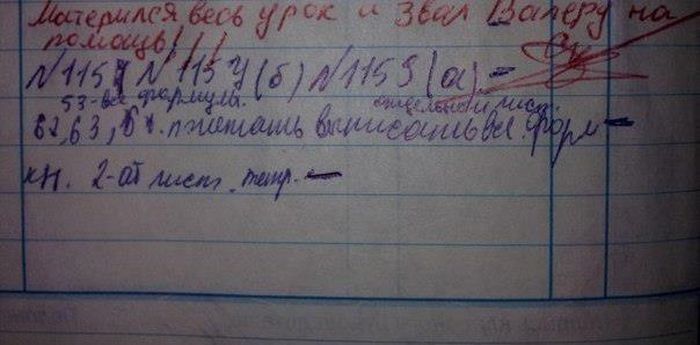 Матерился весь урок и звал Валеру на
помощь!!!
№1151 №115 (б) №1159 (а) -
53-все формулы. отдельный лист.
62,63, выписать все форм -
кн. 2-ой лист. тетр. -